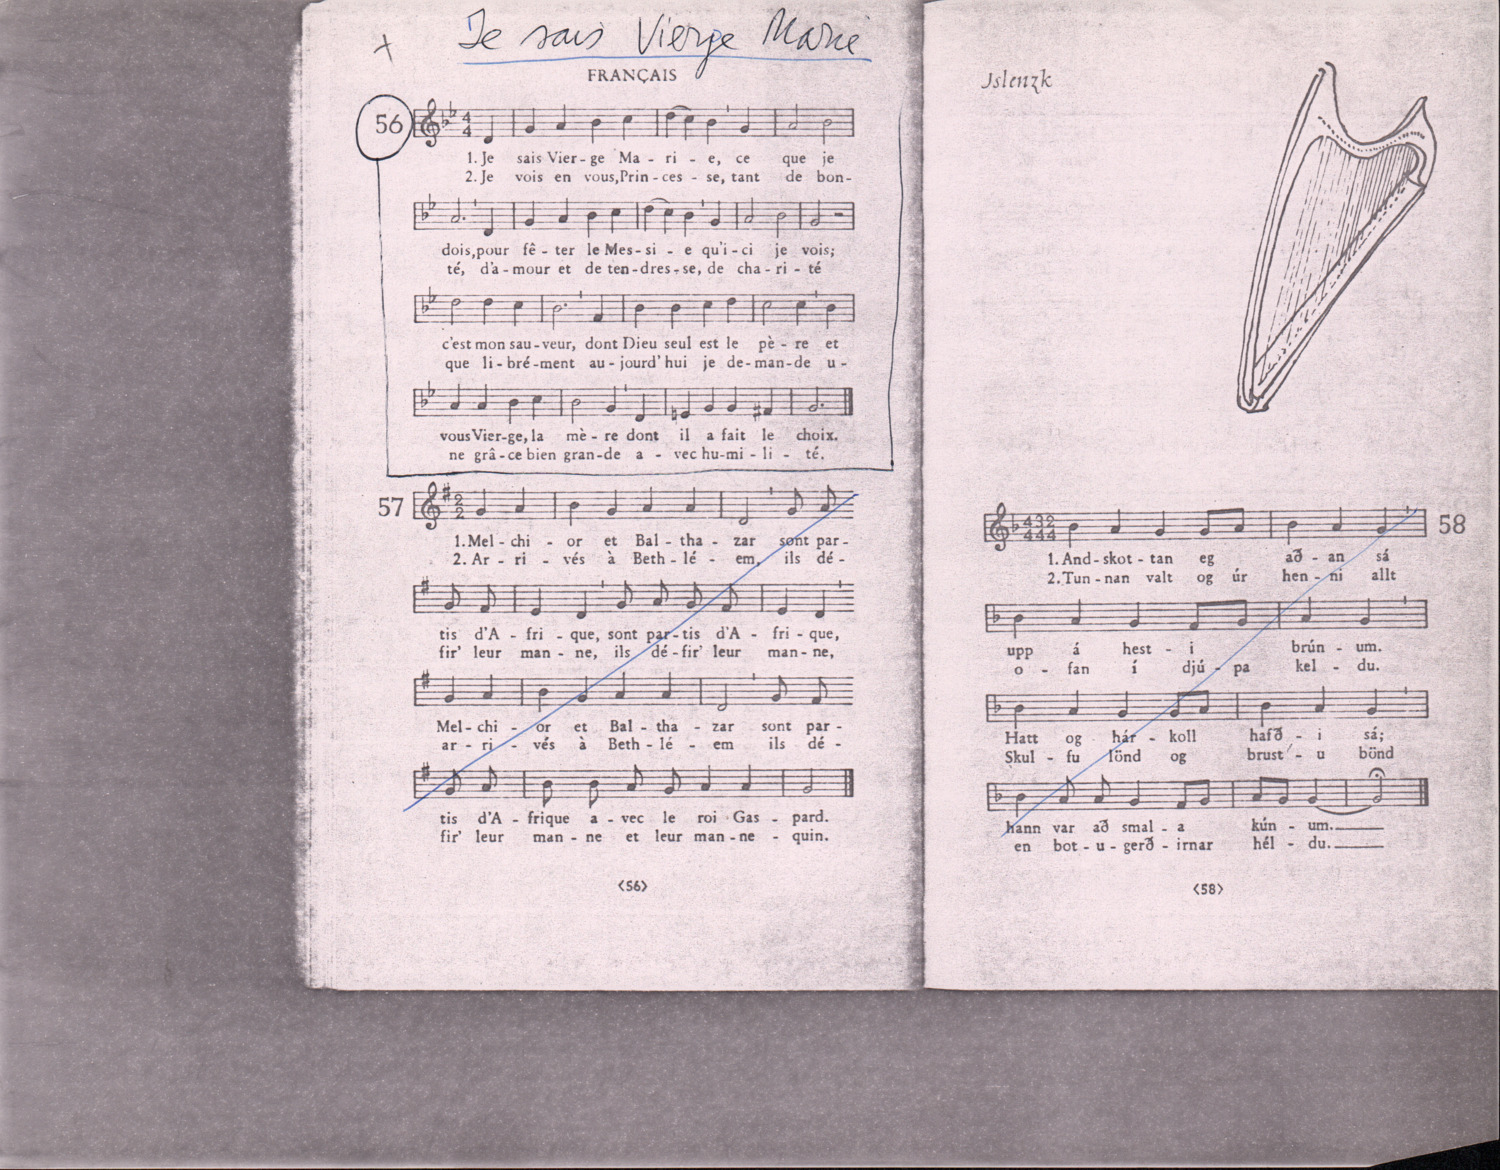 Je sais Vierge Marie
FRANÇAIS
56
1. Je sais Vier-ge Ma-ri-e, ce que je
2. Je vois en vous, Prin-ces-se, tant de bon-
dois, pour fê-ter le Mes-si-e qu'i-ci je vois;
té, d'a-mour et de ten-dres-se, de cha-ri-té
c'est mon sau-veur, dont Dieu seul est le pè-re et
que li-bré-ment au-jourd'hui je de-man-de u-
vous Vier-ge, la mè-re dont il a fait le choix.
ne grâ-ce bien gran-de a-vec hu-mi-li-té.
57
1. Mel-chi-or et Bal-tha-zar sont par-
2. Ar-ri-vés à Beth-lé-em, ils dé-
tis d'A-fri-que, sont par-tis d'A-fri-que,
fir' leur man-ne, ils dé-fir' leur man-ne,
Mel-chi-or et Bal-tha-zar sont par-
ar-ri-vés à Beth-lé-em ils dé-
tis d'A-frique a-vec le roi Gas-pard.
fir' leur man-ne et leur man-ne-quin.
<56>
Islenzk
58
1. And-skot-tan eg að-an sá
2. Tun-nan valt og úr hen-ni allt
upp á hest-i brún-um.
o-fan í djú-pa kel-du.
Hatt og hár-koll hafð-i sá;
Skul-fu lönd og brust'-u bönd
hann var að smal-a kún-um.
en bot-u-gerð-irnar hél-du.
<58>